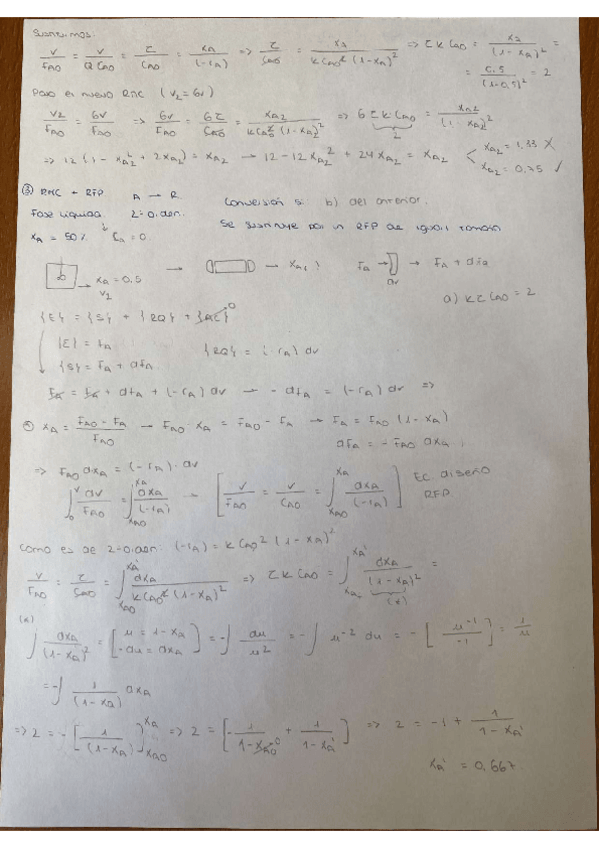 Sustituimos:
V/F_A0 = V/(Q C_A0) = τ/C_A0 = x_A/(-r_A) => τ/C_A0 = x_A/(k C_A0² (1-x_A)²) => τ k C_A0 = x_A/(1-x_A)² =
= 0.5/(1-0.5)² = 2
Para el nuevo RMC (V_2 = 6V)
V_2/F_A0 = 6V/F_A0 => 6V/F_A0 = 6τ/C_A0 = x_A2/(k C_A0² (1-x_A2)²) => 6 τ k C_A0 = x_A2/(1-x_A2)²
2
=> 12 (1 - x_A2² + 2x_A2) = x_A2 → 12 - 12x_A2² + 24x_A2 = x_A2
x_A2 = 1.33 X
x_A2 = 0.75 ✓
③ RMC → RFP A → R Conversión si b) del anterior.
Fase líquida 2=o.den. Se sustituye por un RFP de igual tamaño
x_A = 50% C_R = 0
x_A = 0.5 → → x_A1 ? F_A → → F_A + dF_A
V_2 dV
a) kτC_A0 = 2
{E} = {S} + {RQ} + {AC} 0
{E} = F_A {RQ} = (-r_A) dV
{S} = F_A + dF_A
F_A = F_A + dF_A + (-r_A) dV → -dF_A = (-r_A) dV =>
x_A = (F_A0 - F_A)/F_A0 → F_A0 · x_A = F_A0 - F_A → F_A = F_A0 (1-x_A)
dF_A = -F_A0 dx_A
=> F_A0 dx_A = (-r_A) · dV
∫_0^V dV/F_A0 = ∫_xA0^xA dx_A/(-r_A) → [V/F_A0 = V/C_A0 = ∫_xA0^xA dx_A/(-r_A)] EC. diseño RFP
Como es de 2=o.den: (-r_A) = k C_A0² (1-x_A)²
V/F_A0 = τ/C_A0 = ∫_xA0^xA dx_A/(k C_A0² (1-x_A)²) => τ k C_A0 = ∫ dx_A/(1-x_A)² =
(*)
(*)
∫ dx_A/(1-x_A)² = [u = 1-x_A, -du = dx_A] = -∫ du/u² = -∫ u⁻² du = -[u⁻¹/-1] = 1/u
= -∫ 1/(1-x_A) dx_A
=> 2 = -[1/(1-x_A)]_xA0^xA => 2 = [-1/(1-x_A0) + 1/(1-x_A')] => 2 = -1 + 1/(1-x_A')
x_A' = 0.667